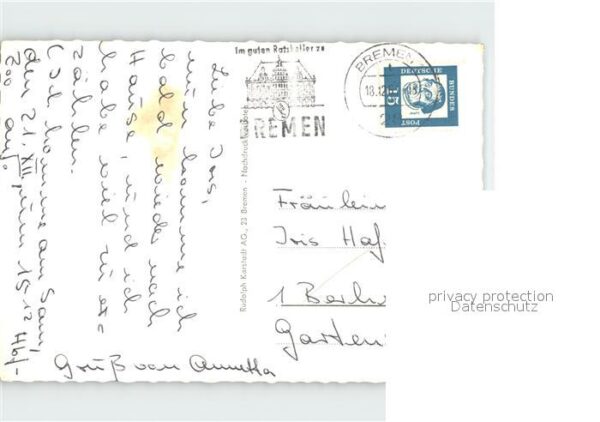 Liebe Iris,
nun komme ich
bald wieder nach
Hause, und ich
habe viel zu er-
zählen.
Ich komme am Sam,
den 21. XII, um 15.12 Hbf-
Zoo an.
Gruß von
Im guten Ratskeller zu
BREMEN
BREMEN
18.12
DEUTSCHE
BUNDES
POST
15
Rudolph Karstadt AG., 23 Bremen - Nachdruck
Fräulein
Iris Haf
1 Berlin
Garten
privacy protection
Datenschutz